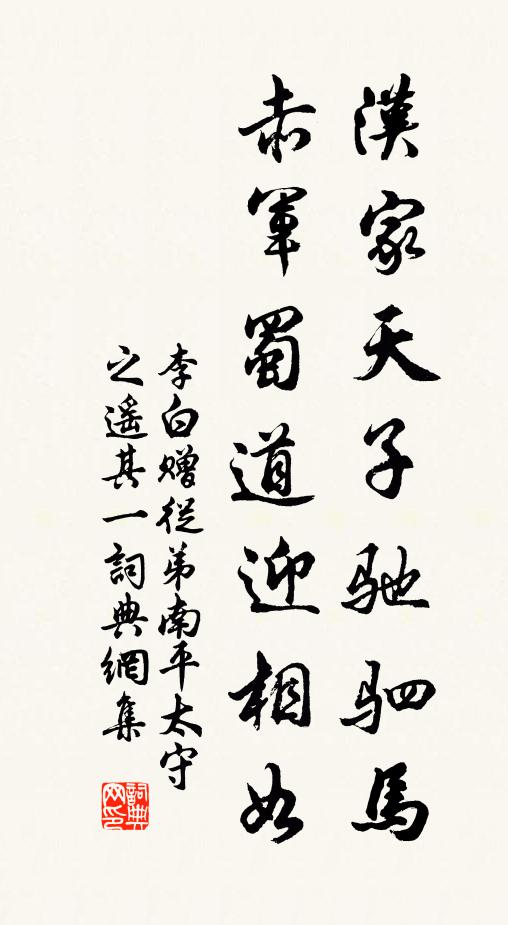 漢家天子馳駟馬
赤軍蜀道迎相如
李白贈從弟南平太守
之遙其一詞典網集
詞典
网印